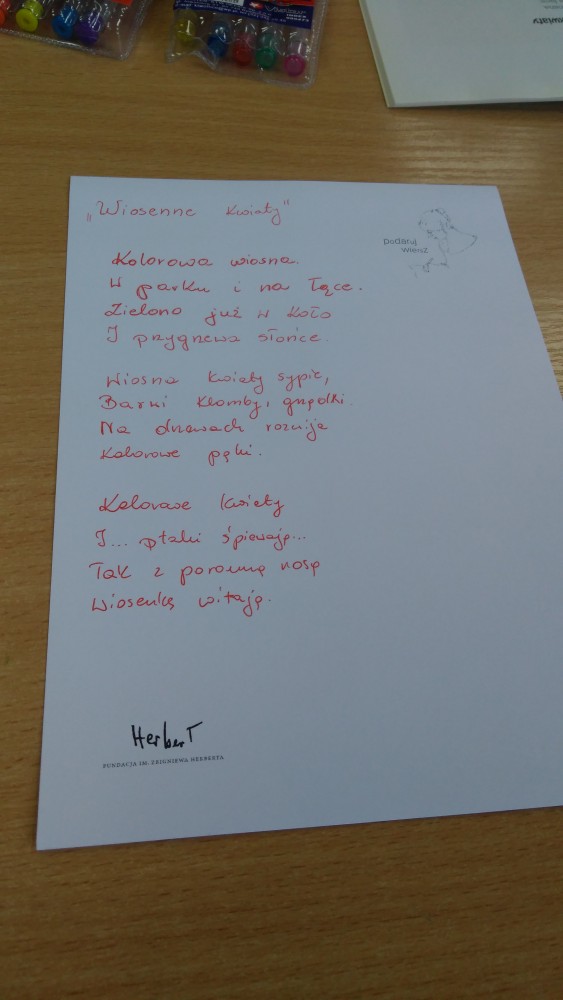 „Wiosenne kwiaty"
Podaruj
wiersz
Kolorowa wiosna.
W parku i na łące.
Zielono już w koło
I przygrzewa słońce.
Wiosna kwiaty sypie,
Barwi klomby, grządki.
Na drzewach rozwija
Kolorowe pąki.
Kolorowe kwiaty
I... ptaki śpiewają...
Tak z poranną rosą
Wiosenkę witają.
Herbert
FUNDACJA IM. ZBIGNIEWA HERBERTA